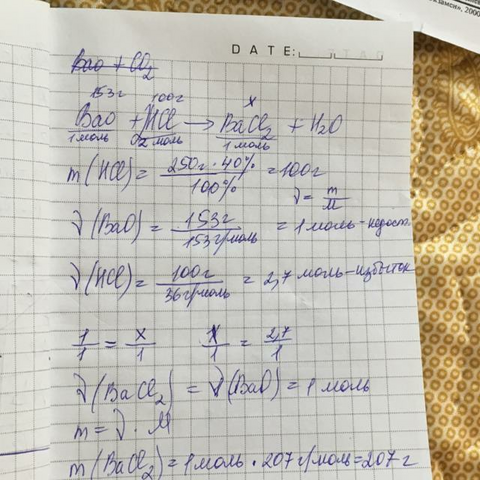 DATE:
BaO + CO2
153г 100г x
BaO + HCl → BaCl2 + H2O
1 моль 02 моль 1 моль
m(HCl) = 250г · 40% / 100% = 100г
ν = m / M
ν(BaO) = 153г / 153г/моль = 1 моль - недост.
ν(HCl) = 100г / 36г/моль = 2,7 моль - избыток
1/1 = x/1 1/1 = 2,7/1
ν(BaCl2) = ν(BaO) = 1 моль
m = ν · M
m(BaCl2) = 1 моль · 207 г/моль = 207 г